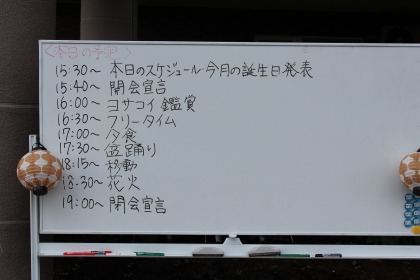 ＜本日の予定＞
15:30～ 本日のスケジュール・今月の誕生日発表
15:40～ 開会宣言
16:00～ ヨサコイ鑑賞
16:30～ フリータイム
17:00～ 夕食
17:30～ 盆踊り
18:15～ 移動
18:30～ 花火
19:00～ 閉会宣言